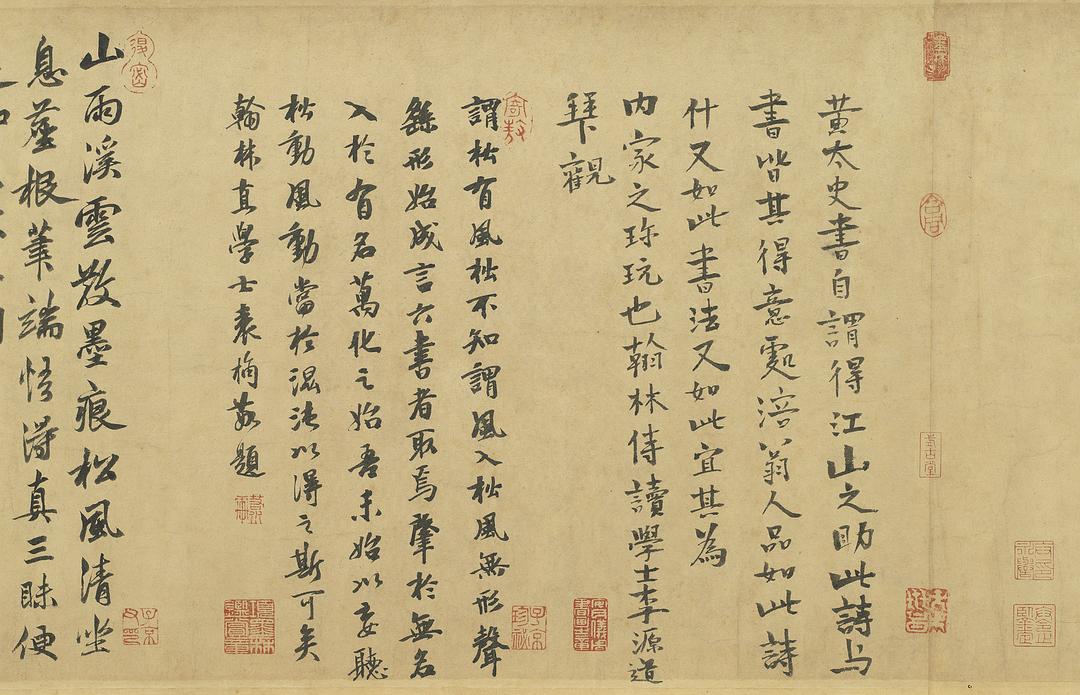 式古堂
黃太史書自謂得江山之助此詩与
書皆其得意處涪翁人品如此詩
什又如此書法又如此宜其為
内家之珎玩也翰林侍讀學士李源道
拜觀
謂松有風松不知謂風入松風無形聲
繇形始成言六書者取焉肇於無名
入於有名萬化之始吾未始以妄聽
松動風動當於混沌以得之斯可矣
翰林直學士袁桷敬題
山雨溪雲散墨痕松風清坐
息塵根筆端悟得真三昧便